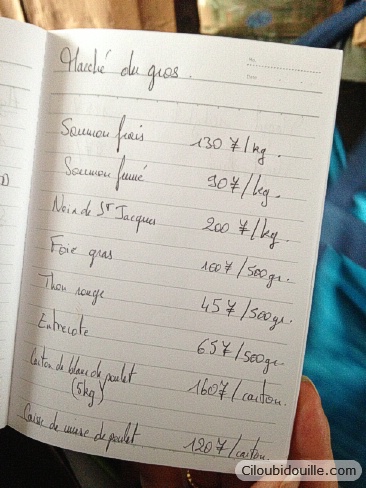 Marché du gros.
No.
Date
Saumon frais 130 ¥/kg.
Saumon fumé 90 ¥/kg.
Noix de St Jacques 200 ¥/kg.
Foie gras 100 ¥/500gr.
Thon rouge 45 ¥/500gr.
Entrecote 65 ¥/500gr
Carton de blanc de poulet 160 ¥/carton.
(5kg)
Caisse de cuisse de poulet 120 ¥/carton
Ciloubidouille.com